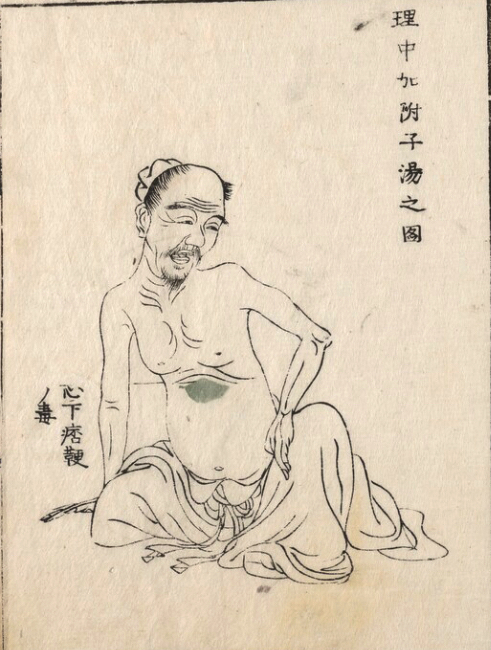 理中加附子湯之圖
心下痞鞕
ノ毒